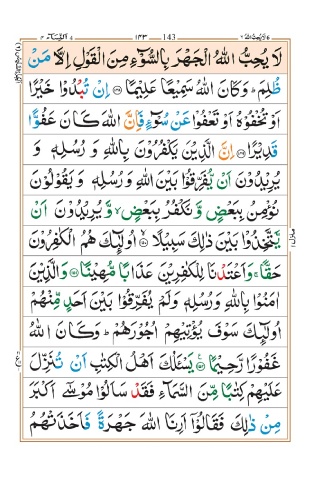 لا یحب الله ٦ النسآء ٤ ١٤٣ 143
لَا يُحِبُّ اللّٰهُ الْجَهْرَ بِالسُّوْٓءِ مِنَ الْقَوْلِ اِلَّا مَنْ
ظُلِمَ ؕ وَكَانَ اللّٰهُ سَمِيْعًا عَلِيْمًا ﴿۱۴۸﴾ اِنْ تُبْدُوْا خَيْرًا
اَوْ تُخْفُوْهُ اَوْ تَعْفُوْا عَنْ سُوْٓءٍ فَاِنَّ اللّٰهَ كَانَ عَفُوًّا
قَدِيْرًا ﴿۱۴۹﴾ اِنَّ الَّذِيْنَ يَكْفُرُوْنَ بِاللّٰهِ وَ رُسُلِهٖ وَ
يُرِيْدُوْنَ اَنْ يُّفَرِّقُوْا بَيْنَ اللّٰهِ وَ رُسُلِهٖ وَ يَقُوْلُوْنَ
نُؤْمِنُ بِبَعْضٍ وَّ نَكْفُرُ بِبَعْضٍ ۙ وَّ يُرِيْدُوْنَ اَنْ
يَّتَّخِذُوْا بَيْنَ ذٰلِكَ سَبِيْلًا ﴿۱۵۰﴾ اُولٰٓئِكَ هُمُ الْكٰفِرُوْنَ
حَقًّا ۚ وَ اَعْتَدْنَا لِلْكٰفِرِيْنَ عَذَابًا مُّهِيْنًا ﴿۱۵۱﴾ وَ الَّذِيْنَ
اٰمَنُوْا بِاللّٰهِ وَ رُسُلِهٖ وَ لَمْ يُفَرِّقُوْا بَيْنَ اَحَدٍ مِّنْهُمْ
اُولٰٓئِكَ سَوْفَ يُؤْتِيْهِمْ اُجُوْرَهُمْ ؕ وَ كَانَ اللّٰهُ
غَفُوْرًا رَّحِيْمًا ﴿۱۵۲﴾ يَسْئَلُكَ اَهْلُ الْكِتٰبِ اَنْ تُنَزِّلَ
عَلَيْهِمْ كِتٰبًا مِّنَ السَّمَآءِ فَقَدْ سَاَلُوْا مُوْسٰٓى اَكْبَرَ
مِنْ ذٰلِكَ فَقَالُوْٓا اَرِنَا اللّٰهَ جَهْرَةً فَاَخَذَتْهُمُ
منزل ١